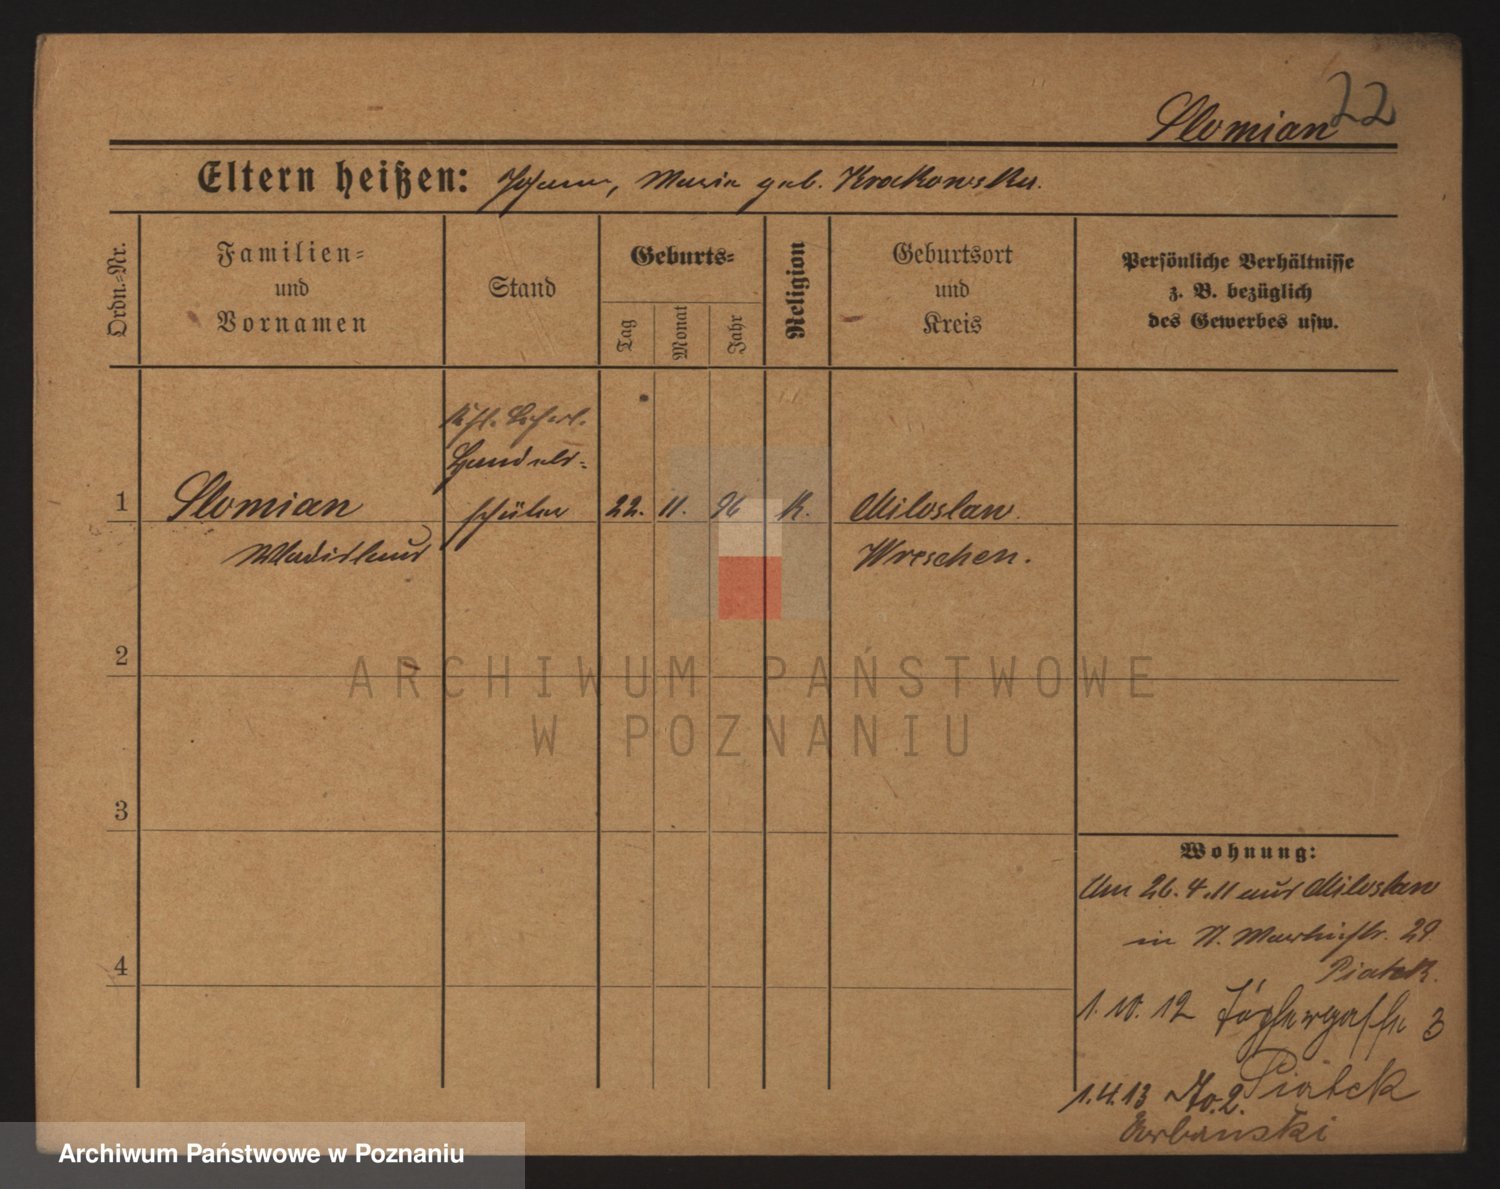 22
Slomian
Eltern heißen: Johann, Maria geb. Krakowska.
Ordn.-Nr.
Familien-
und
Vornamen
Stand
Geburts-
Tag
Monat
Jahr
Religion
Geburtsort
und
Kreis
Persönliche Verhältnisse
z. B. bezüglich
des Gewerbes usw.
Handels-
1 Slomian schüler 22. 11. 96 K. Miloslaw
Wladislaus Wreschen.
2
ARCHIWUM PAŃSTWOWE
W POZNANIU
3
Wohnung:
Am 26.4.11 aus Miloslaw
in St. Martinstr. 29
4
Piatek.
1.10.12 Töpfergasse 3
Piatek
1.4.13 No. 2.
Urbanski
Archiwum Państwowe w Poznaniu